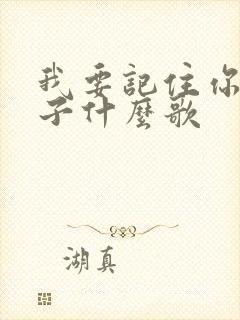 我要記住你
子什麼歌
湖真